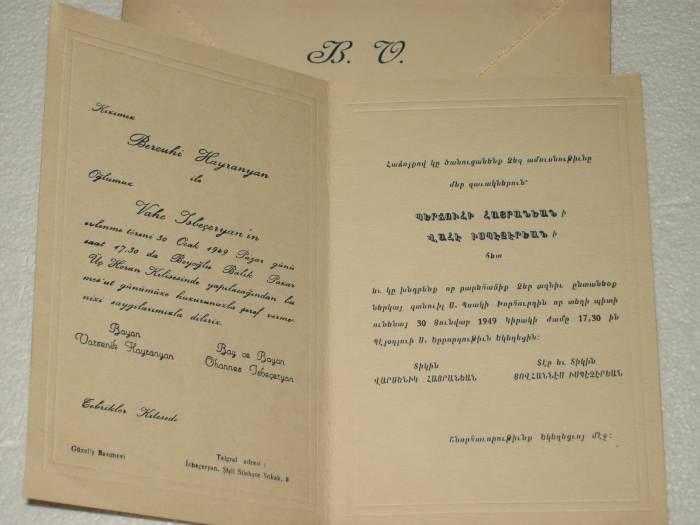 B. V.
Kızımız
Bercuhi Hayranyan
ile
Oğlumuz
Vahe İsbeçeryan'ın
evlenme töreni 30 Ocak 1949 Pazar günü
saat 17.30 da Beyoğlu Balık Pazar
Üç Horan Kilisesinde yapılacağından bu
mes'ut günümüze huzurunuzla şeref verme-
nizi saygılarımızla dileriz.
Bayan
Vartenik Hayranyan
Bay ve Bayan
Ohannes İsbeçeryan
Tebrikler Kilisede
Güzeliş Basımevi
Telgraf adresi :
İsbeçeryan, Şişli Sokak, 8
Հաճոյքով կը ծանուցանենք Ձեզ ամուսնութիւնը
մեր զաւակներուն՝
ՊԵՐՃՈՒՀԻ ՀԱՅՐԱՆԵԱՆ ի
ՎԱՀԷ ԻՍՊԷՉԷՐԵԱՆ ի
հետ
եւ կը խնդրենք որ բարեհաճիք Ձեր ազնիւ ընտանեօք
ներկայ գտնուիլ Ս. Պսակի Խորհուրդին որ տեղի պիտի
ունենայ 30 Յունվար 1949 Կիրակի ժամը 17,30 ին
Պէյօղլուի Ս. Երրորդութիւն եկեղեցին։
Տիկին
ՎԱՐՍԵՆԻԿ ՀԱՅՐԱՆԵԱՆ
Տէր եւ Տիկին
ՅՈՎՀԱՆՆԷՍ ԻՍՊԷՉԷՐԵԱՆ
Շնորհաւորութիւնք եկեղեցւոյ մէջ։